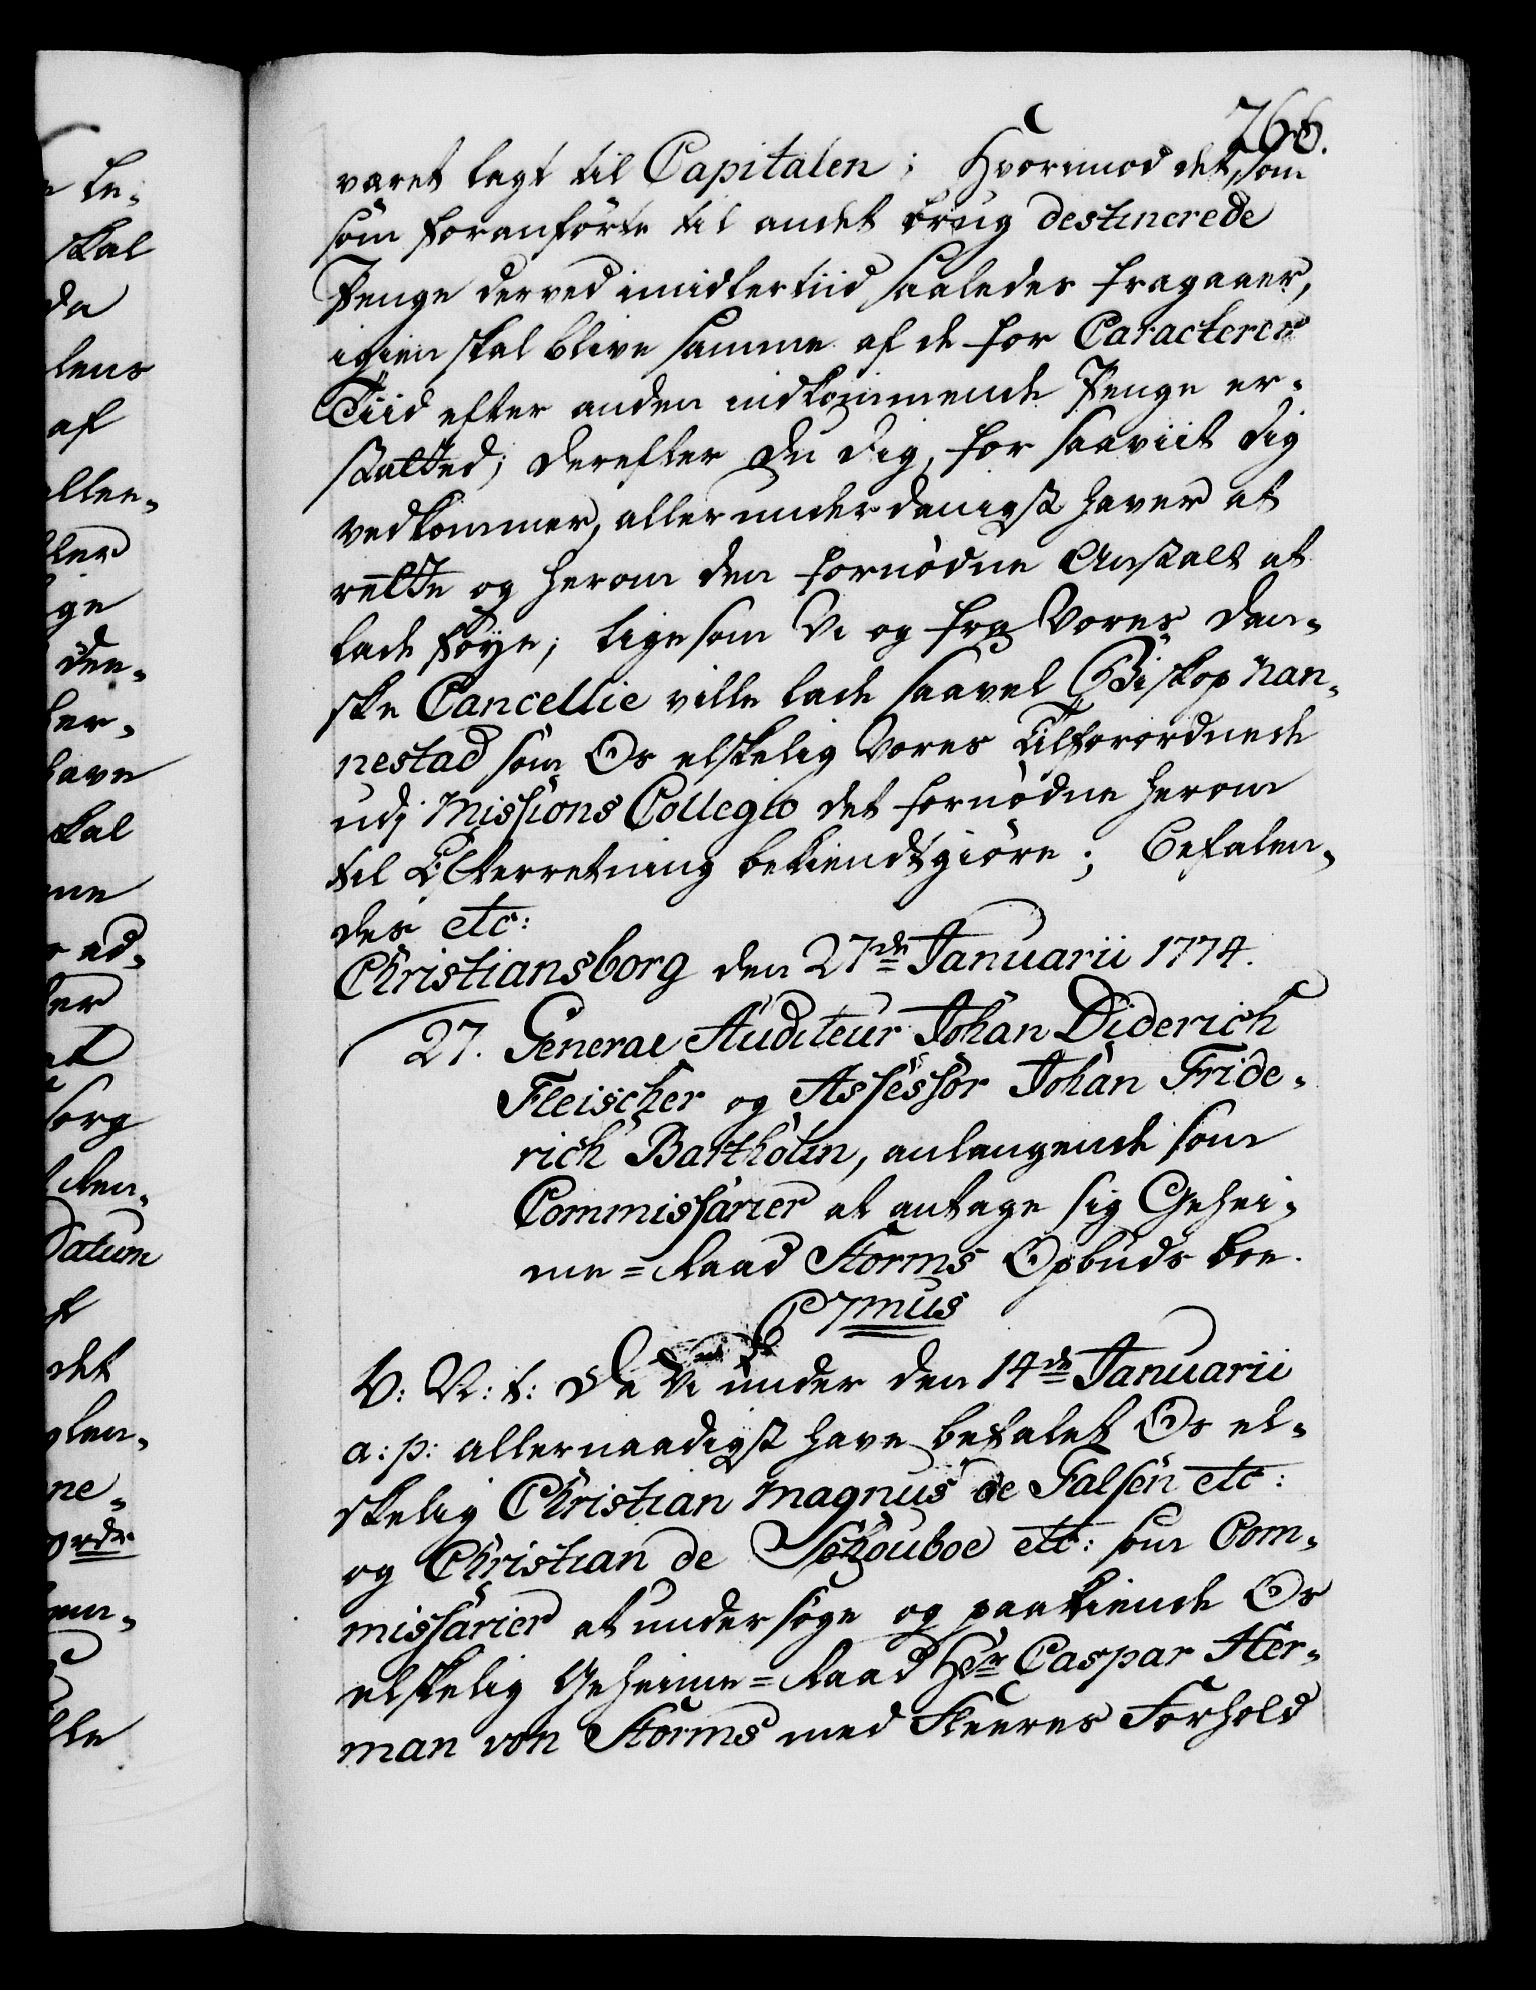 266.
været lagt til Capitalen; Hvorimod det, som
som foranførte til andet brug destinerede
Penge derved imidlertiid saaledes fragaaer,
igien skal blive samme af de for Caracterer
Tiid efter anden indkommende Penge er-
statted; Derefter du dig, for saaviit dig
vedkommer, allerunderdanigst haver at
rette og herom den fornødne Anstalt at
lade føye; ligesom Vi og fra Vores Dan-
ske Cancellie ville lade saavel Biskop Nan-
nestad som Os elskelig Vores Tilforordnede
udj Missions Collegio det fornødne herom
til Efterretning bekiendtgiøre; Befalen-
des etc:
Christiansborg den 27de Januarii 1774.
27. General Auditeur Johan Diderich
Fleischer og Assessor Johan Fride-
rich Bartholin, anlangende som
Commissarier at antage sig Gehei-
me=Raad Storms Opbuds boe.
C7mus
V: N: t: Da Vi under den 14de Januarii
a: p: allernaadigst have befalet Os el-
skelig Christian Magnus de Falsen etc:
og Christian de Schouboe etc: som Com-
missarier at undersøge og paakiende Os
elskelig Geheime=Raad Hr Caspar Her-
man von Storms med Fleeres Forhold